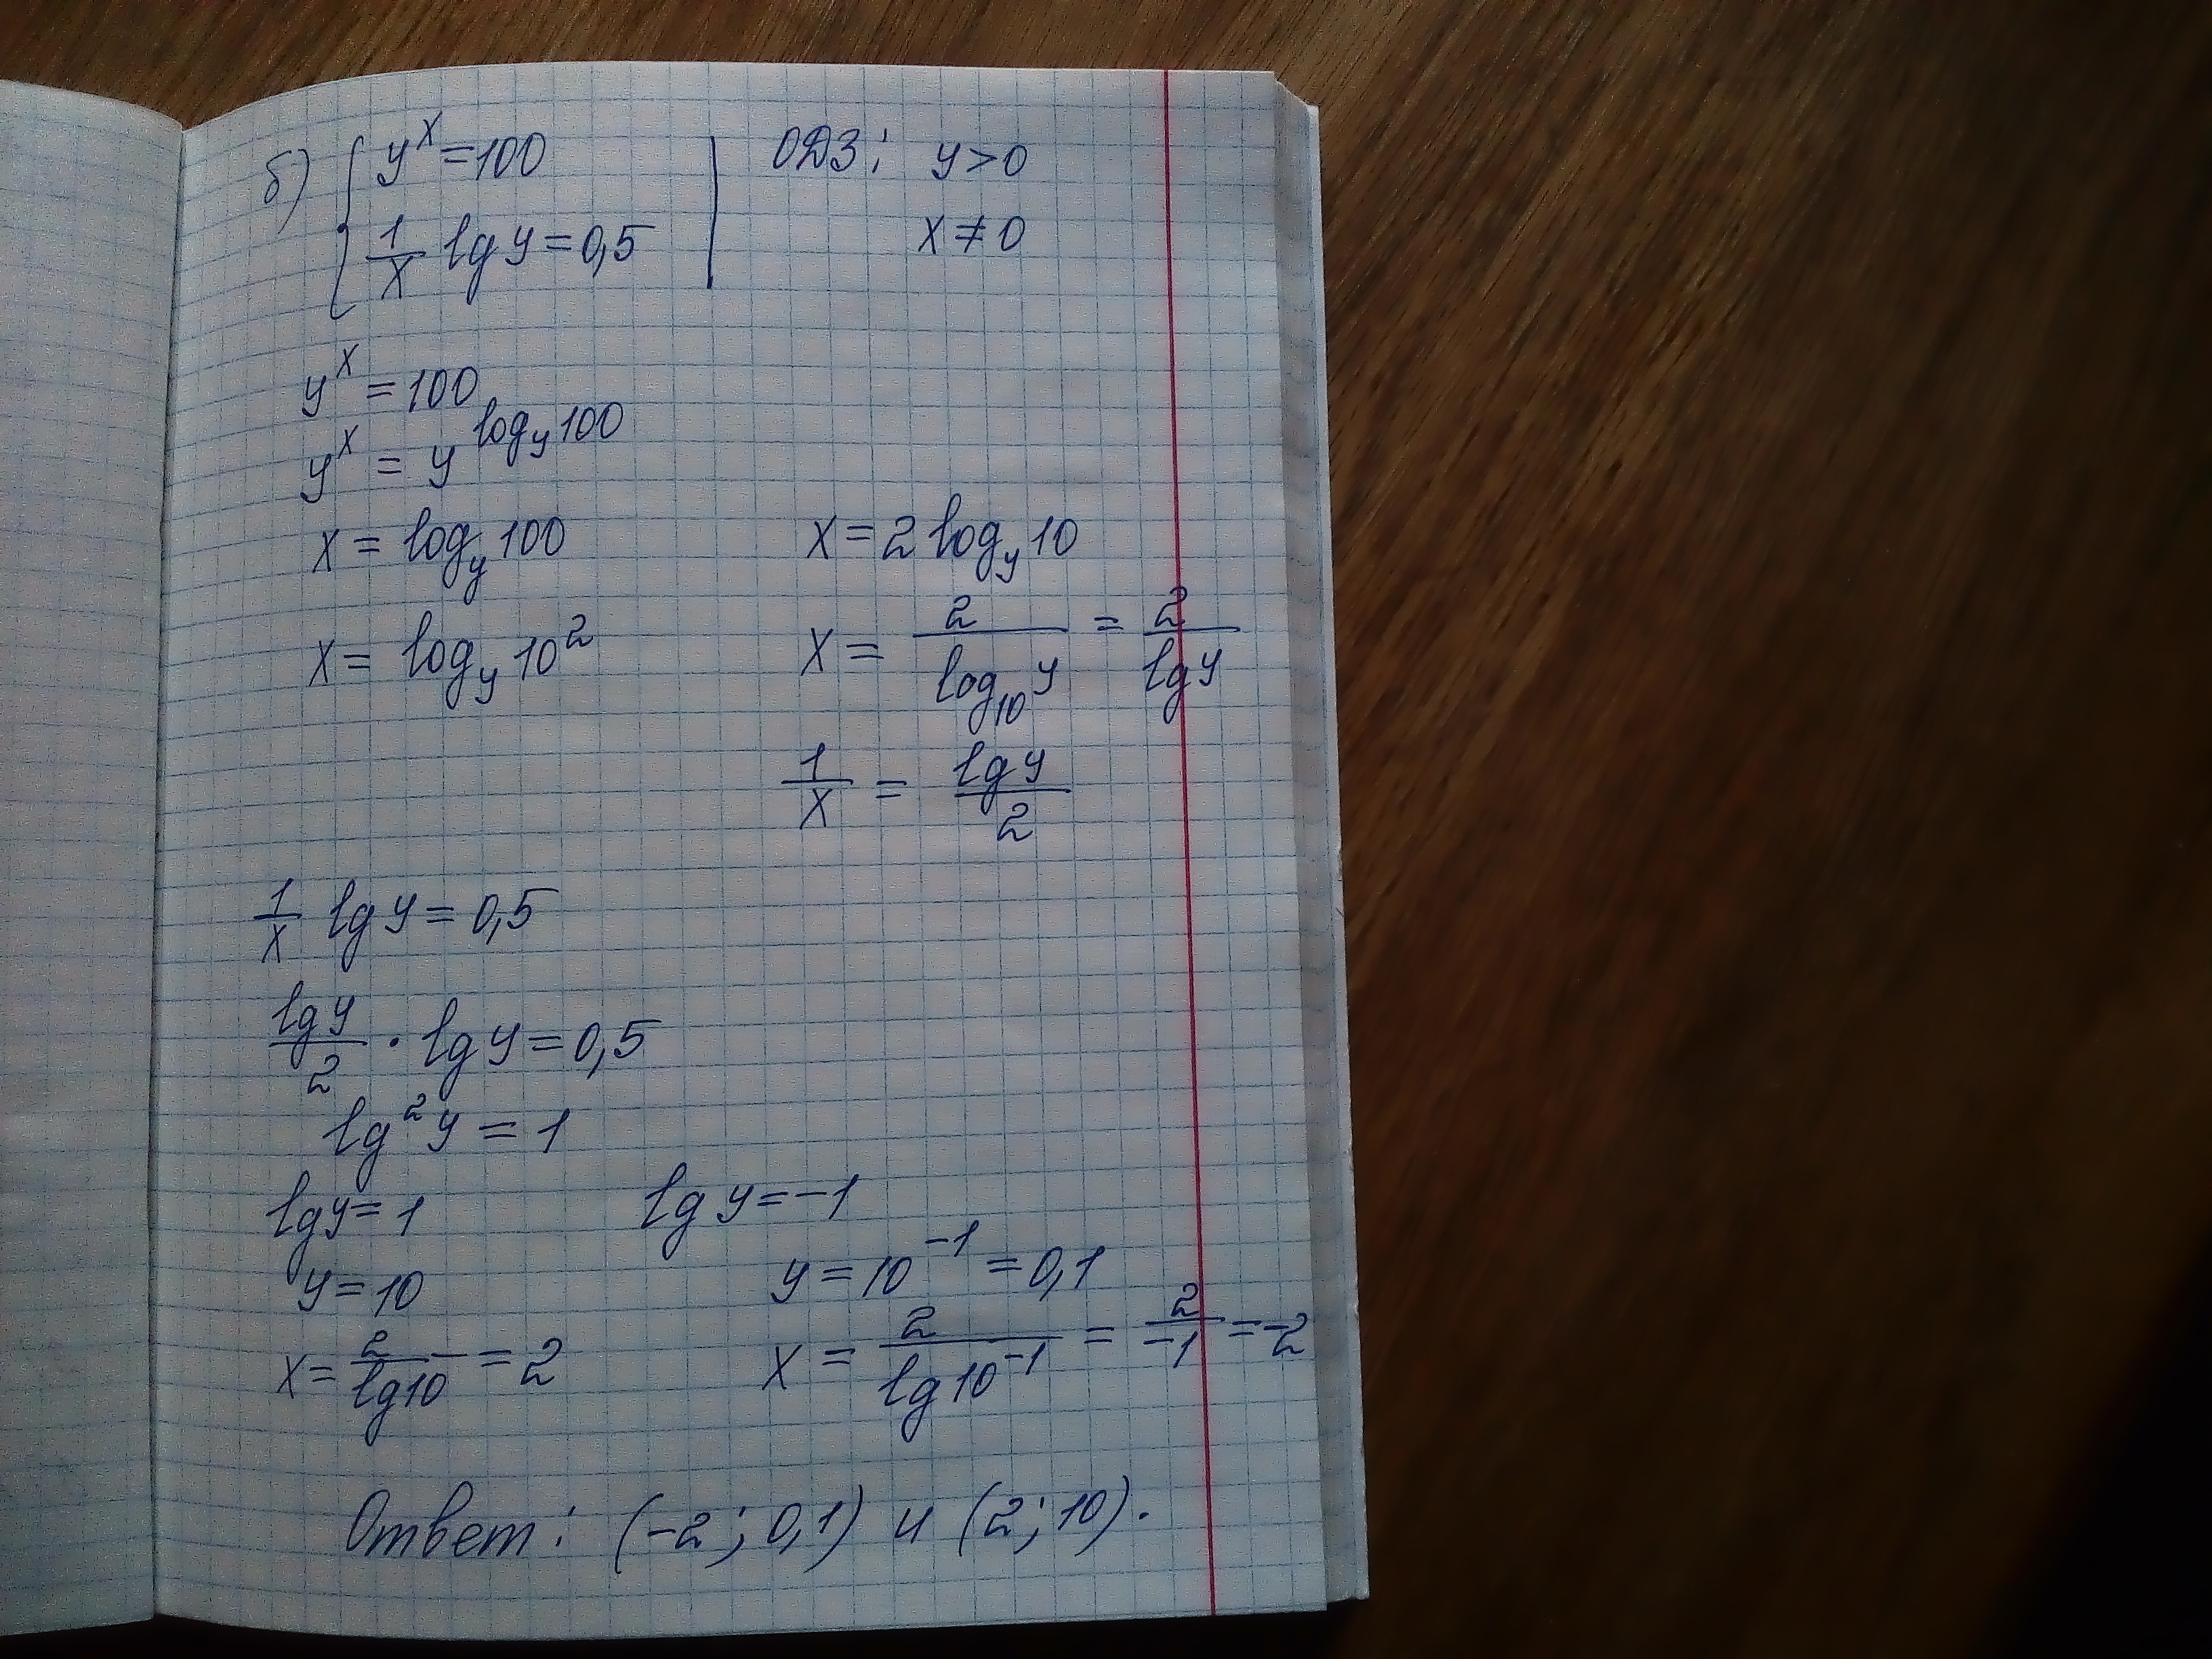 б) { y^x = 100 | ОДЗ: y > 0
1/x lg y = 0,5 | x ≠ 0
y^x = 100
y^x = y^(log_y 100)
x = log_y 100
x = log_y 10^2
x = 2 log_y 10
x = 2/(log_10 y) = 2/(lg y)
1/x = (lg y)/2
1/x lg y = 0,5
(lg y)/2 · lg y = 0,5
lg^2 y = 1
lg y = 1
y = 10
x = 2/(lg 10) = 2
lg y = -1
y = 10^-1 = 0,1
x = 2/(lg 10^-1) = 2/-1 = -2
Ответ: (-2; 0,1) и (2; 10).